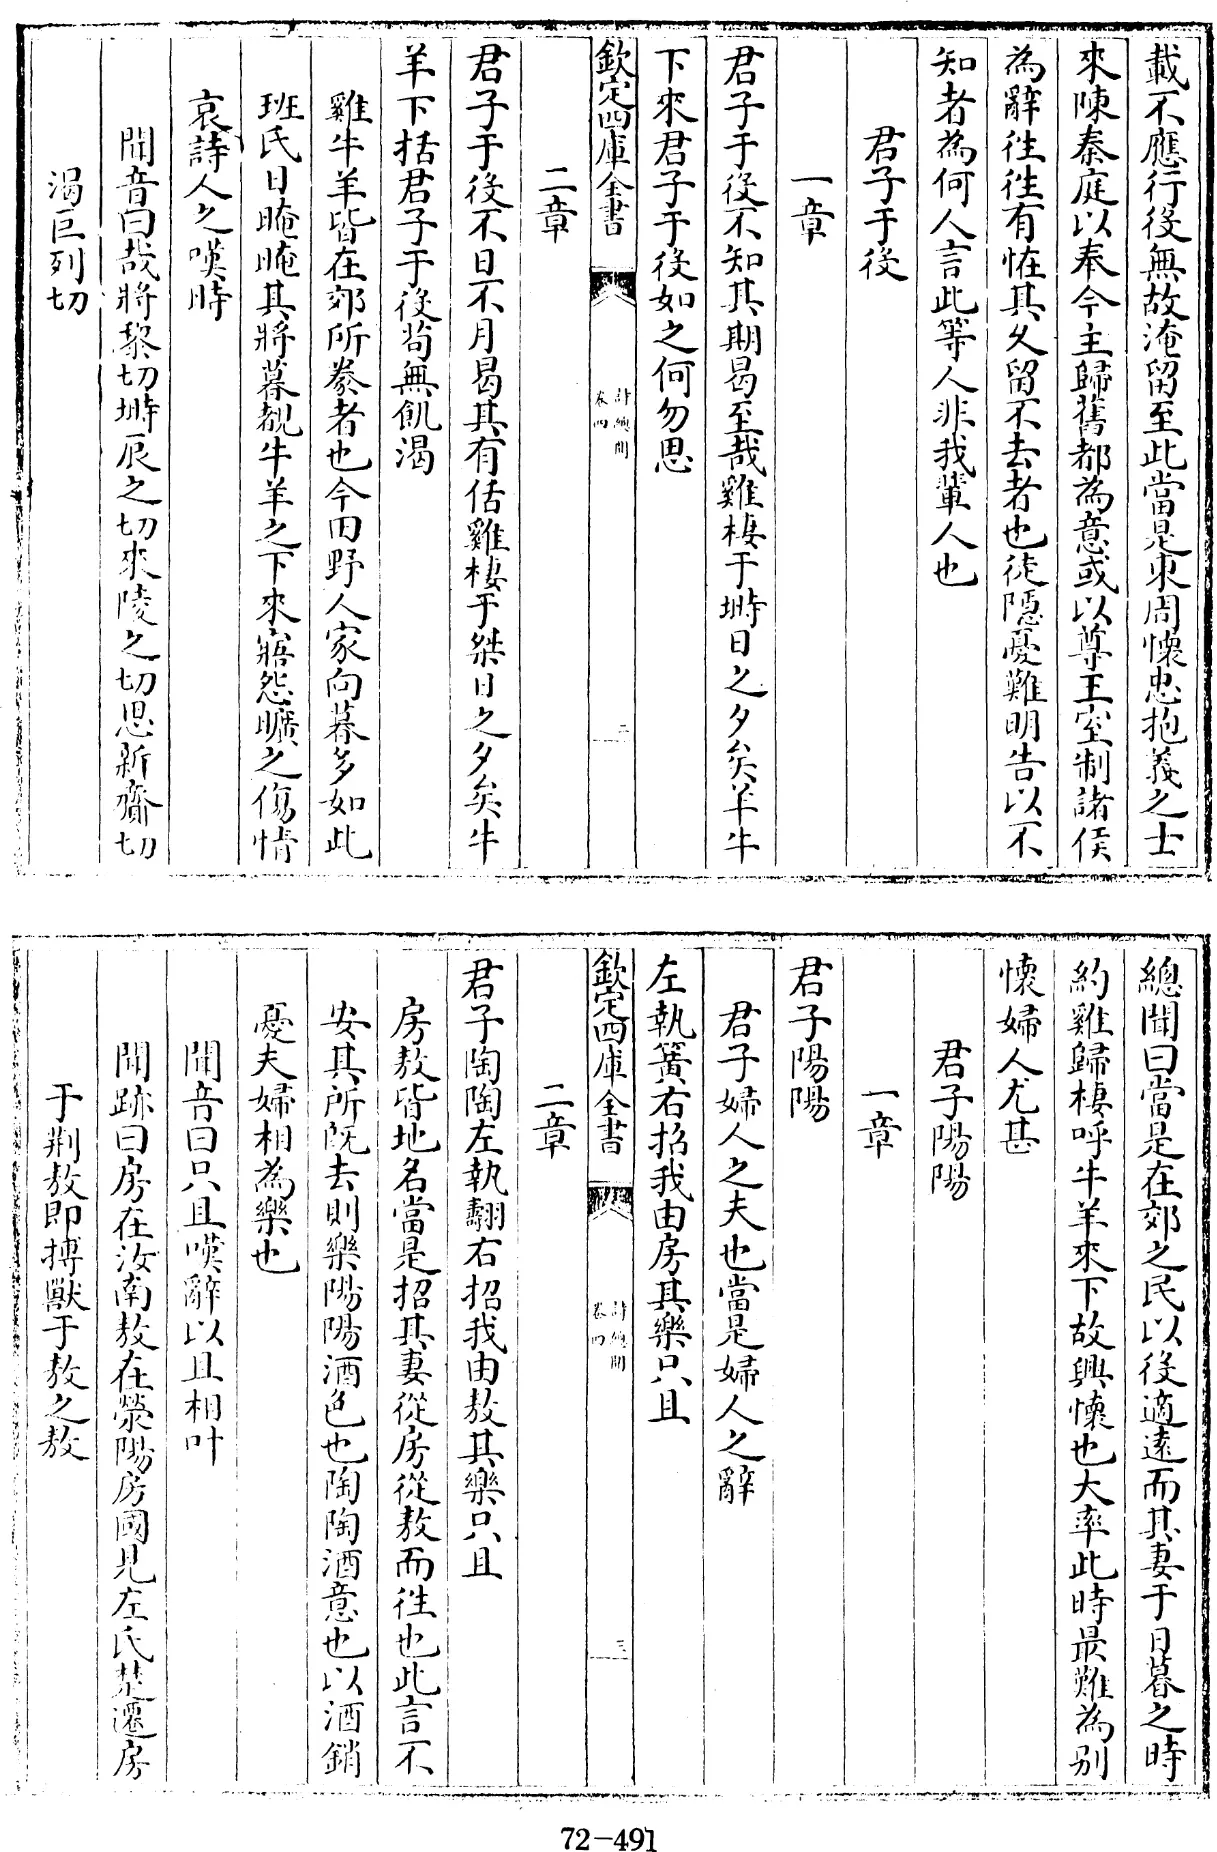 載不應行役無故淹留至此當是東周懷忠抱義之士
來陳秦庭以奉今主歸舊都為意或以尊王室制諸侯
為辭往往有怪其久留不去者也徒隠憂難明告以不
知者為何人言此等人非我輩人也
君子于役
一章
君子于役不知其期曷至哉雞棲于塒日之夕矣羊牛
下來君子于役如之何勿思
欽定四庫全書
詩總聞
卷四
二
二章
君子于役不日不月曷其有佸雞棲于桀日之夕矣牛
羊下括君子于役苟無飢渴
雞牛羊皆在郊所豢者也今田野人家向暮多如此
班氏日晻晻其將暮覩牛羊之下來寤怨曠之傷情
哀詩人之嘆時
聞音曰哉將黎切塒辰之切來陵之切思新齎切
渴巨列切
總聞曰當是在郊之民以役適遠而其妻于日暮之時
約雞歸棲呼牛羊來下故興懷也大率此時最難為別
懷婦人尤甚
君子陽陽
一章
君子陽陽
君子婦人之夫也當是婦人之辭
左執簧右招我由房其樂只且
欽定四庫全書
詩總聞
卷四
三
二章
君子陶陶左執翿右招我由敖其樂只且
房敖皆地名當是招其妻從房從敖而往也此言不
安其所既去則樂陽陽酒色也陶陶酒意也以酒銷
憂夫婦相為樂也
聞音曰只且嘆辭以且相叶
聞跡曰房在汝南敖在滎陽房國見左氏楚遷房
于荆敖即搏獸于敖之敖
72-491